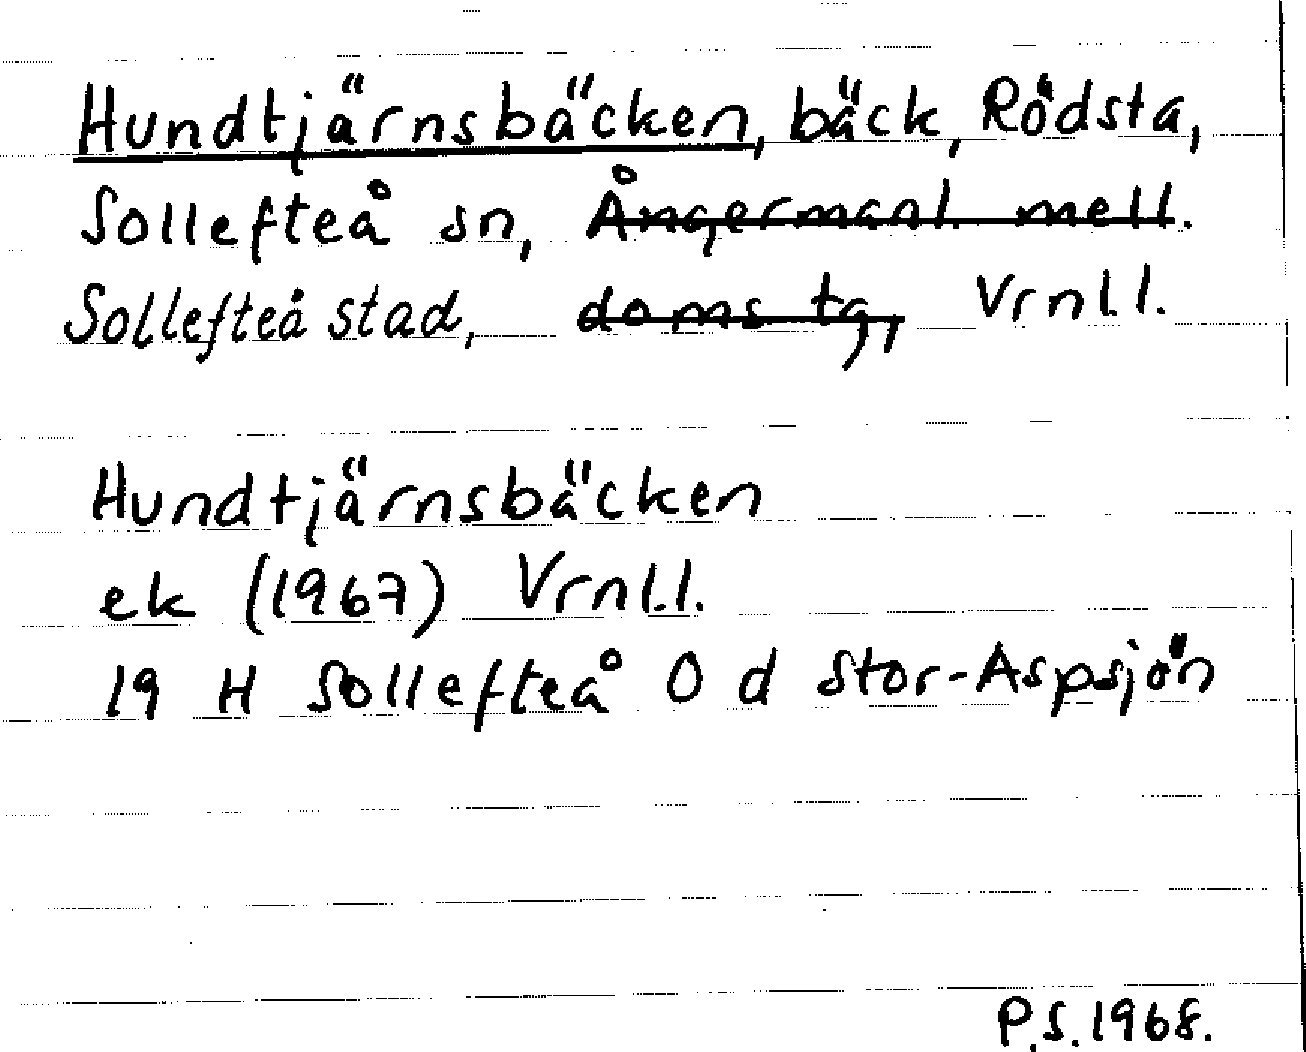 Hundtjärnsbäcken, bäck, Rödsta,
Sollefteå sn, Ångermanl. mell.
Sollefteå stad, doms tg, Vrnl.l.
Hundtjärnsbäcken
ek (1967) Vrnl.l.
19 H Sollefteå O d Stor-Aspsjön
P.S.1968.